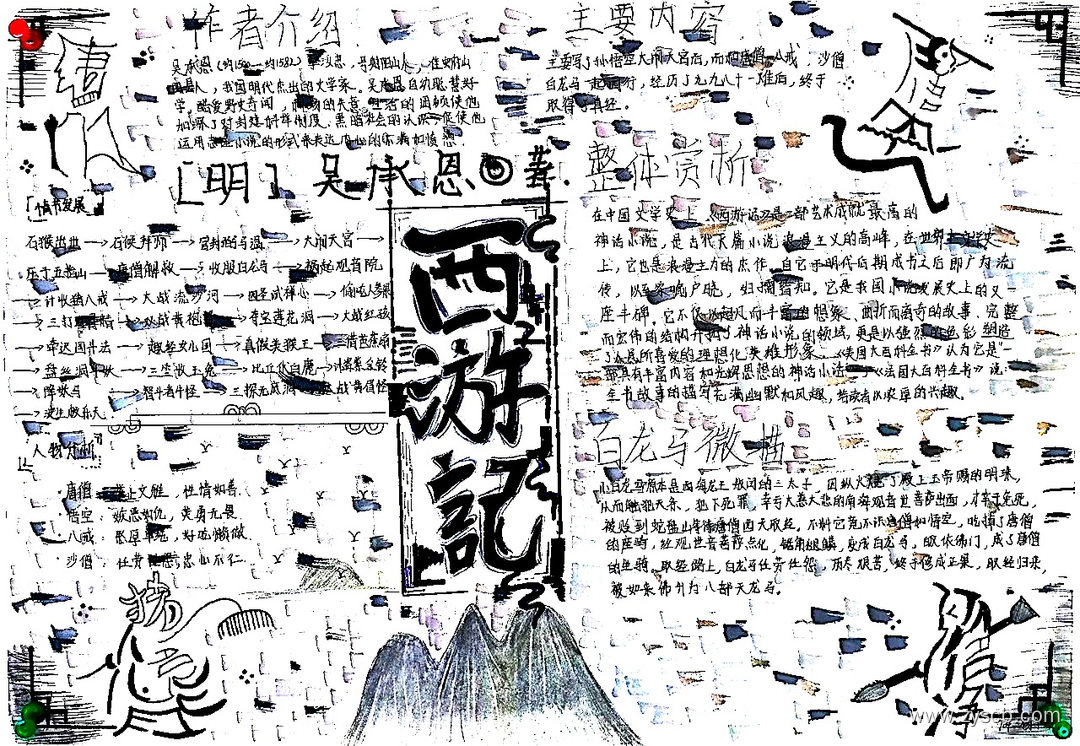 作者介绍
吴承恩(约1500—约1582),字汝忠,号射阳山人,淮安府山
阳县人,我国明代杰出的文学家。吴承恩自幼聪慧好
学,酷爱野史奇闻,
加深了对封建科举制度、黑暗社会的认识,促使他
运用志怪小说的形式来表达内心的不满和愤懑。
主要内容
主要写了孙悟空大闹天宫后,而和唐僧、八戒、沙僧
白龙马一起西行,经历了九九八十一难后,终于
取得了真经。
[明]吴承恩◎著.
西游記
整体赏析
在中国文学史上,《西游记》是一部艺术成就最高的
神话小说,是古代长篇小说浪漫主义的高峰,在世界文学史
上,它也是浪漫主力的杰作。自它于明代后期成书之后即广为流
传,以至家喻户晓,妇孺皆知。它是我国小说发展史上的又一
座丰碑。它不仅以超凡而丰富的想象、曲折而离奇的故事、完整
而宏伟的结构开拓了神话小说的领域,更是以强烈的色彩塑造
了人民所喜爱的理想化英雄形象。《美国大百科全书》认为它是“一
部具有丰富内容和光辉思想的神话小说”,《法国大百科全书》说:
全书故事的描写充满幽默和风趣,给读者以浓厚的兴趣。
情节发展
石猴出世→石猴拜师→官封弼马温→大闹天宫→
压于五行山→唐僧解救→收服白龙马→祸起观音院
→计收猪八戒→大战流沙河→四圣试禅心→偷吃人参果
→三打白骨精→双战黄袍怪→夺宝莲花洞→大战红孩
→车迟国斗法→趣经女儿国→真假美猴王→三借芭蕉扇
→盘丝洞
→智斗青牛怪→三探无底洞
人物分析
唐僧:
悟空:嫉恶如仇,英勇无畏
八戒:憨厚单纯,好吃懒做
沙僧:任劳任怨,忠心不仁
白龙马微描
小白龙马原本是西海龙王敖闰的三太子。因纵火烧了殿上玉帝赐的明珠,
从而触犯天条,犯下死罪,幸亏大慈大悲的南海观音世菩萨出面,才幸于免死,
被贬到蛇盘山等待唐僧西天取经。不料它竟不识唐僧和悟空,吃掉了唐僧
的座骑,经观世音菩萨点化,锯角退鳞,变成白龙马,皈依佛门,成了唐僧
的坐骑。取经路上,白龙马任劳任怨,历尽艰苦,终于修成正果,取经归来,
被如来佛升为八部天龙马。
www.zyscb.com